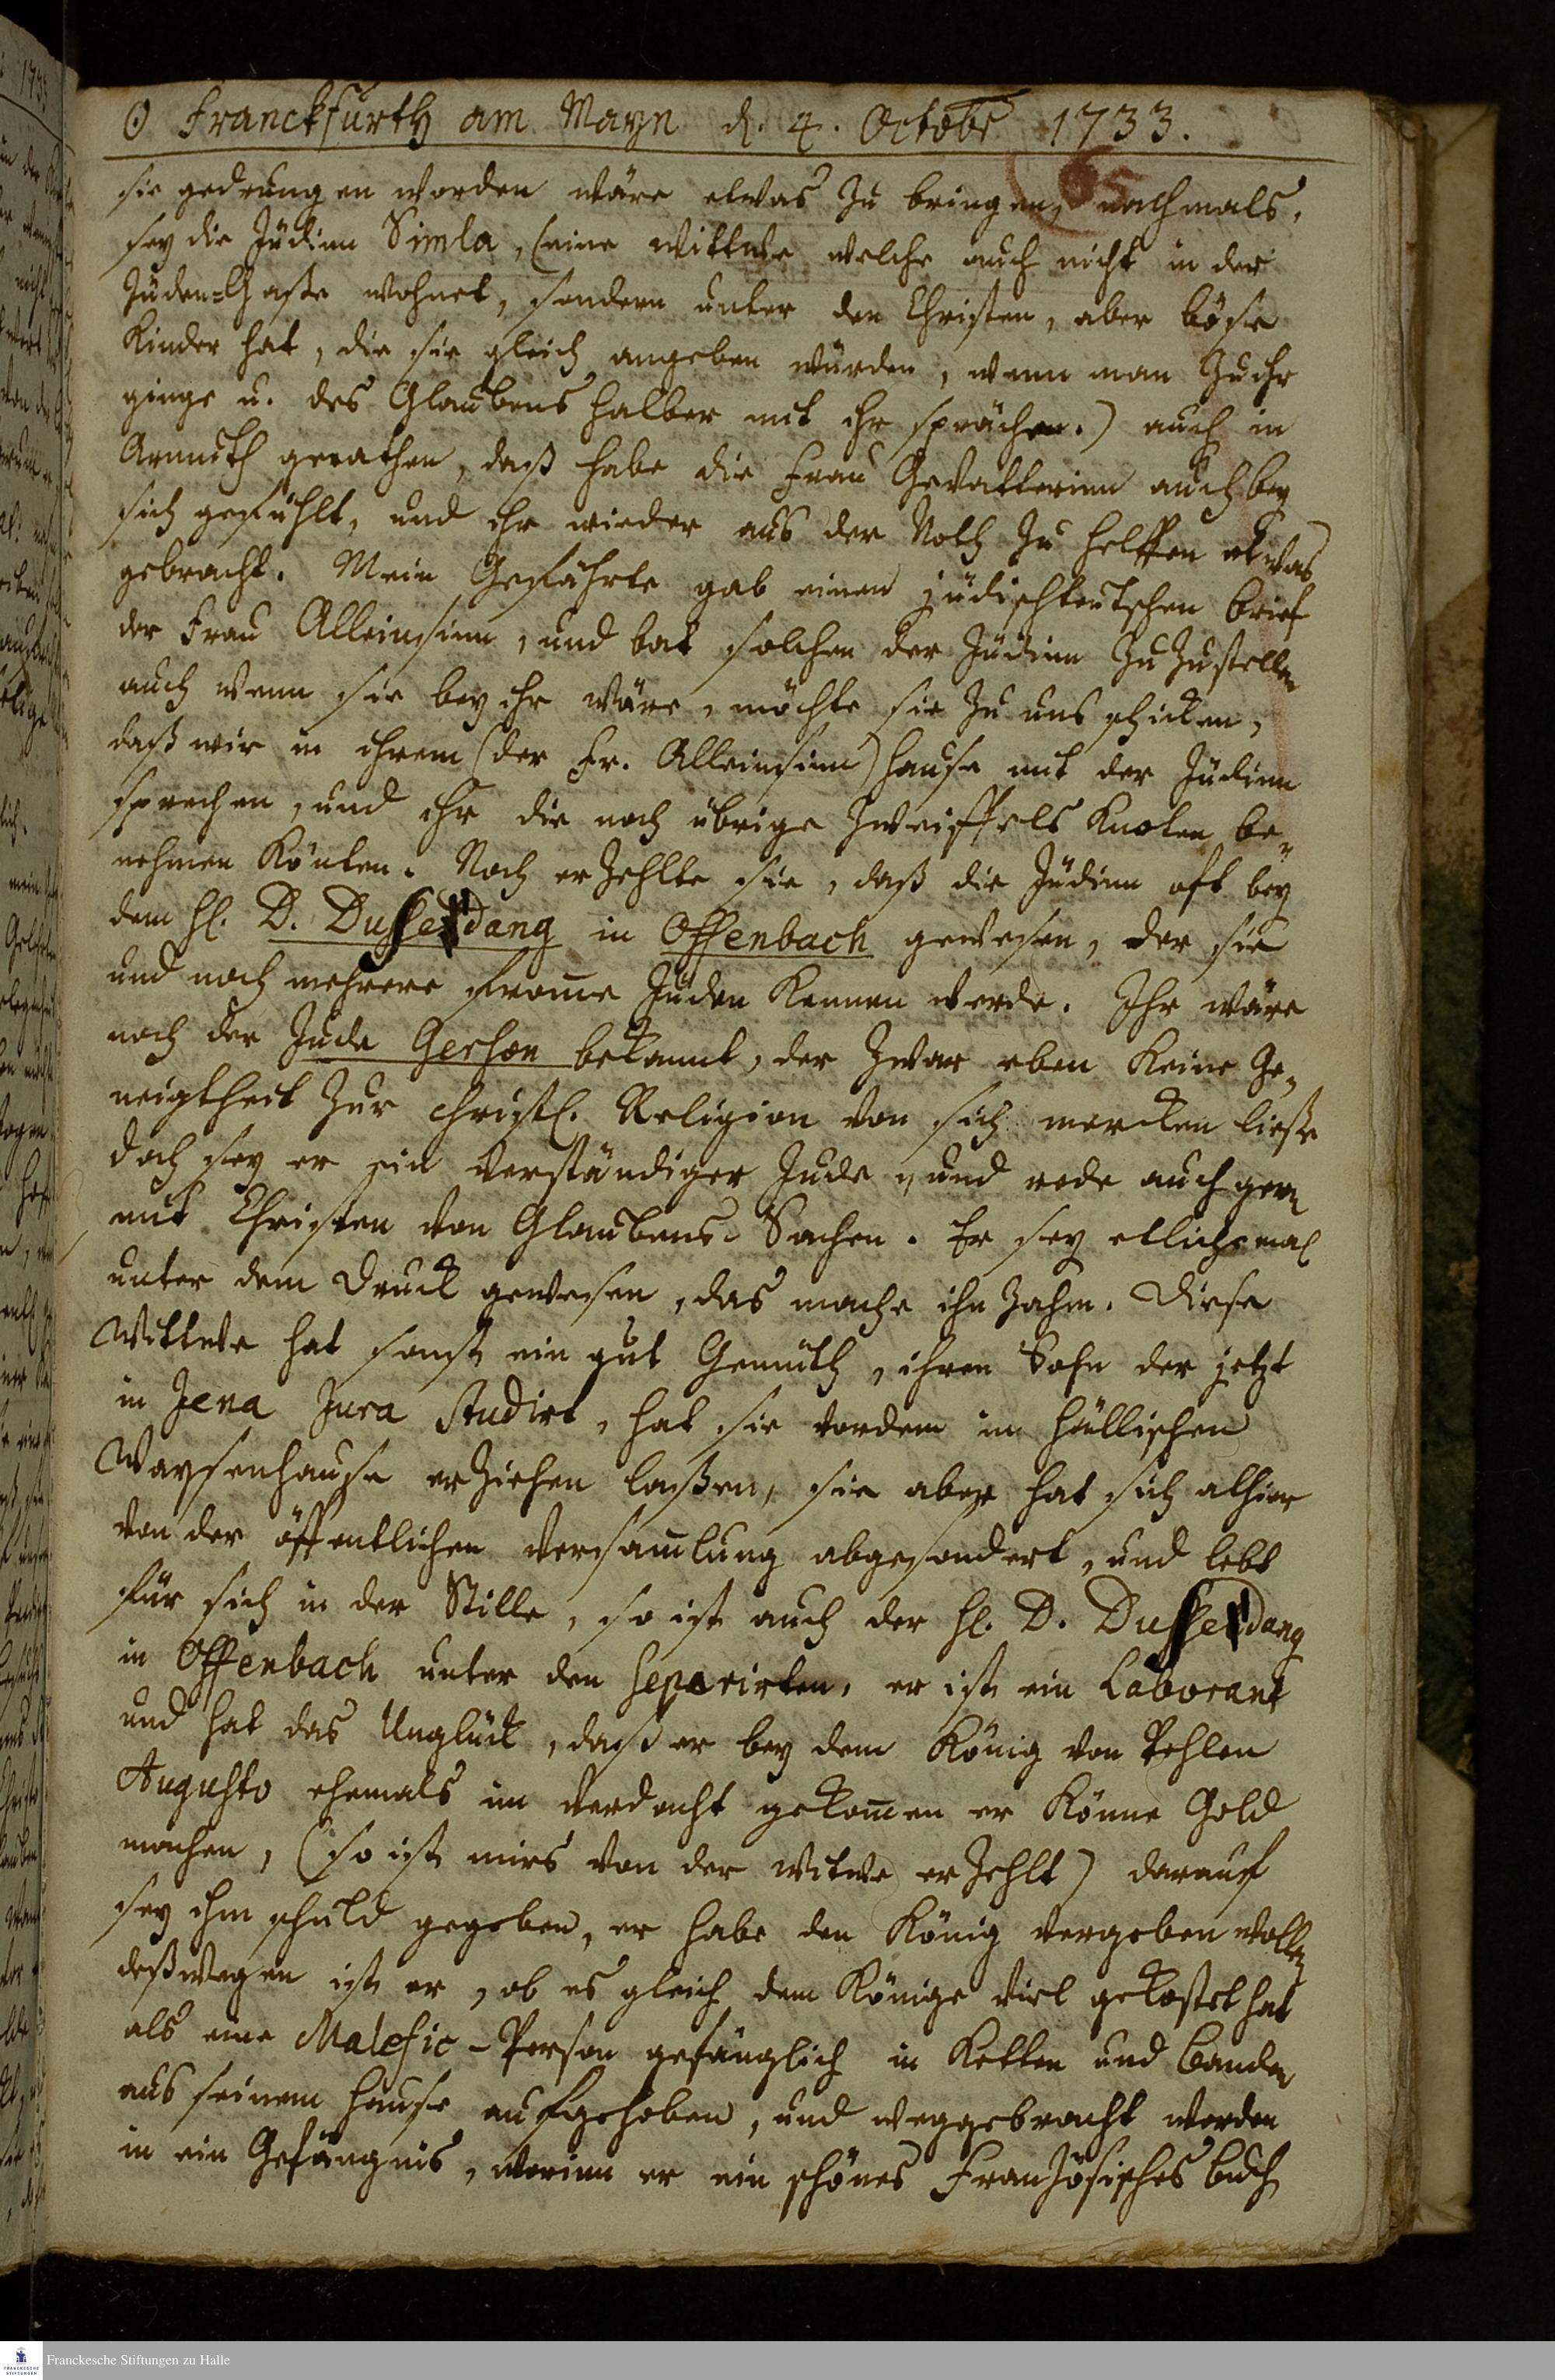 ☉ Franckfurth am Mayn d. 4. Octobr 1733.
65
sie gedrungen worden wäre etwas zu bringen, nachmals,
sey die Jüdinn Simla, (eine Wittwe welche auch nicht in der
Juden-Gasse wohnet, sondern unter den Christen, aber böse
Kinder hat, die sie gleich angeben würden, wenn man zu ihr
ginge u. des Glaubens halber mit ihr sprächen.) auch in
Armuth gerathen, daß habe die Frau Gevatterinn auch bey
sich gefühlt, und ihr wieder aus der Noth zu helffen etwas
gebracht. Mein Gefährte gab einen jüdischteutschen brief
der Frau Alleinsinn, und bat solchen der Jüdinn zuzustellen
auch wenn sie bey ihr wäre, möchte sie zu uns schicken,
daß wir in ihrem (der Fr. Alleinsinn) Hause mit der Jüdinn
sprechen, und ihr die noch übrige Zweiffels Knoten be-
nehmen könten. Noch erzehlte sie, daß die Jüdinn oft bey
dem H. D. Dusseldang in Offenbach gewesen, der sie
und noch mehrere from̅e Juden kennen werde. Ihr wäre
noch der Jude Gerson bekannt, der zwar eben keine Ge-
neigtheit zur christl. Religion von sich mercken liesse
doch sey er ein verständiger Jude, und rede auch gern
mit Christen von Glaubens Sachen. Er sey etlichemal
unter dem Druck gewesen, das mache ihn zahm. Diese
Wittwe hat sonst ein gut Gemüth, ihren Sohn der jetzt
in Jena Jura studirt, hat sie vordem im hällischen
Waysenhause erziehen laßen, sie aber hat sich alhier
von der öffentlichen Versam̅lung abgesondert, und lebt
für sich in der Stille, so ist auch der H. D. Dusseldang
in Offenbach unter den separirten, er ist ein Laborant
und hat das Unglück, daß er bey dem König von Pohlen
Augusto ehemals im Verdacht gekom̅en er könne Gold
machen, (so ist mirs von der Witwe erzehlt) darauf
sey ihm schuld gegeben, er habe den König vergeben wollen
deßwegen ist er, ob es gleich dem Könige viel gekostet hat
als eine Malefic-Person gefänglich in Ketten und Banden
aus seinem Hause aufgehoben, und weggebracht worden
in ein Gefängnis, worinn er ein schönes Französisches buch
Franckesche Stiftungen zu Halle